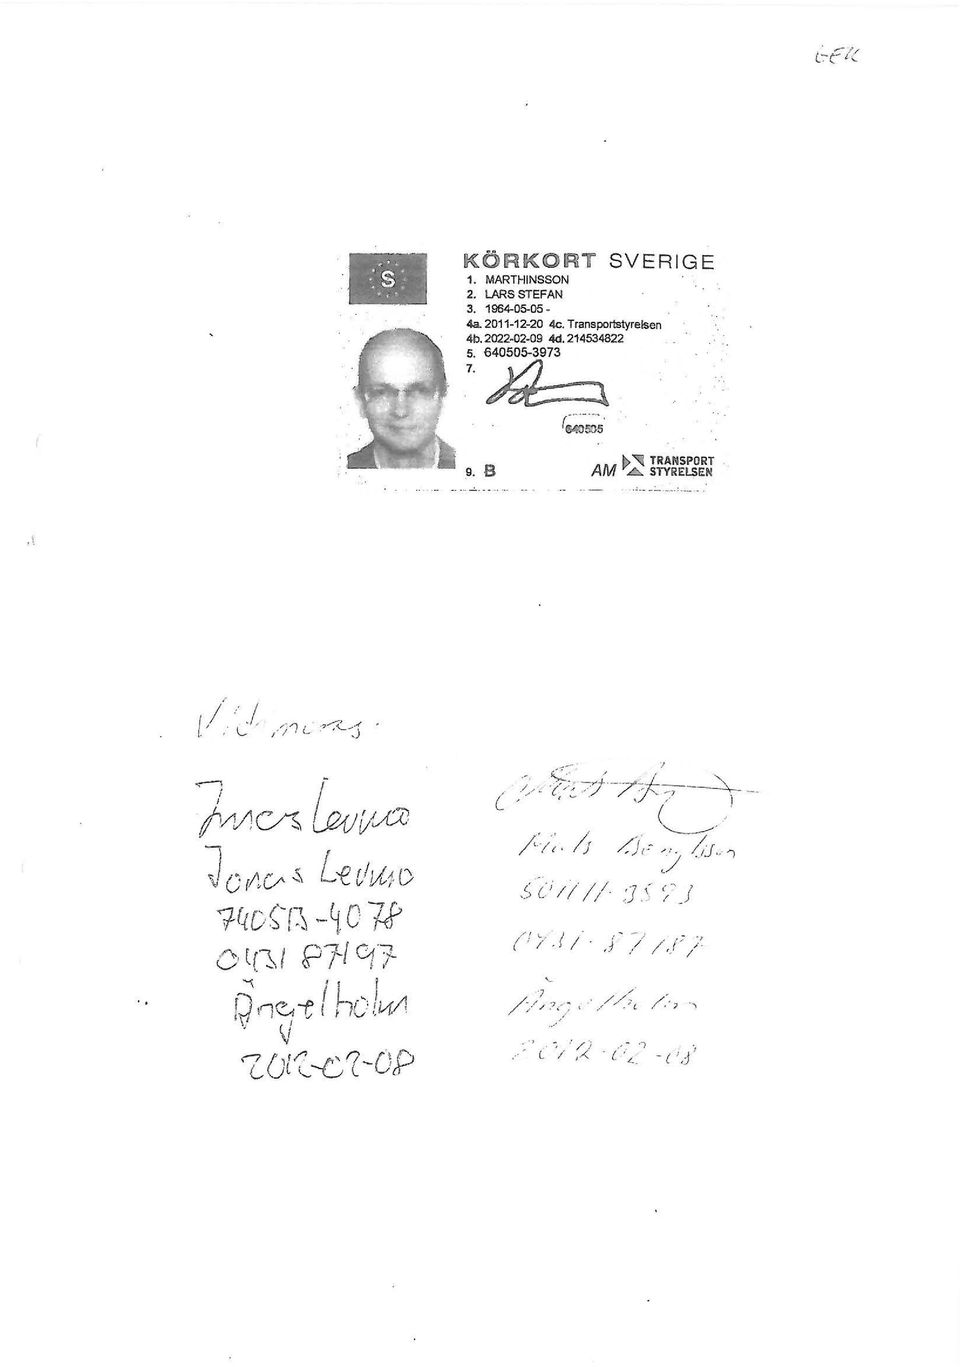 S
KÖRKORT SVERIGE
1. MARTHINSSON
2. LARS STEFAN
3. 1964-05-05 -
4a. 2011-12-20 4c. Transportstyrelsen
4b. 2022-02-09 4d. 214534822
5. 640505-3973
7.
640505
9. B AM TRANSPORT
STYRELSEN
Vidimeras
Jonas Levmo
Jonas Levmo
740513-4078
0431 87197
Ängelholm
2012-02-08
Mats Bengtsson
501111-3593
0431-87187
Ängelholm
2012-02-08